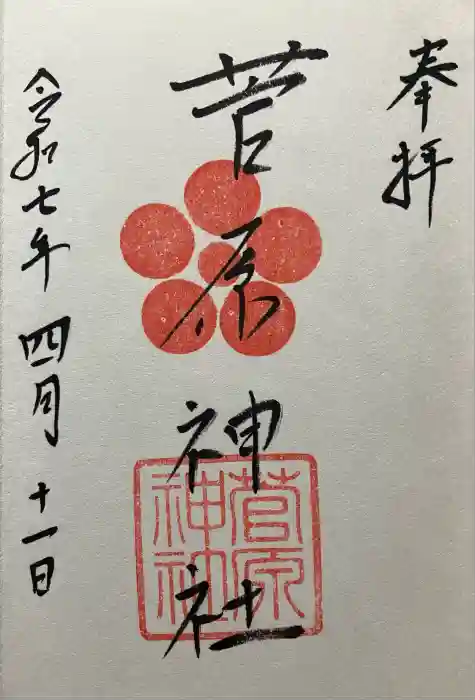 奉拝
菅原神社
菅原
神社
令和七年四月十一日